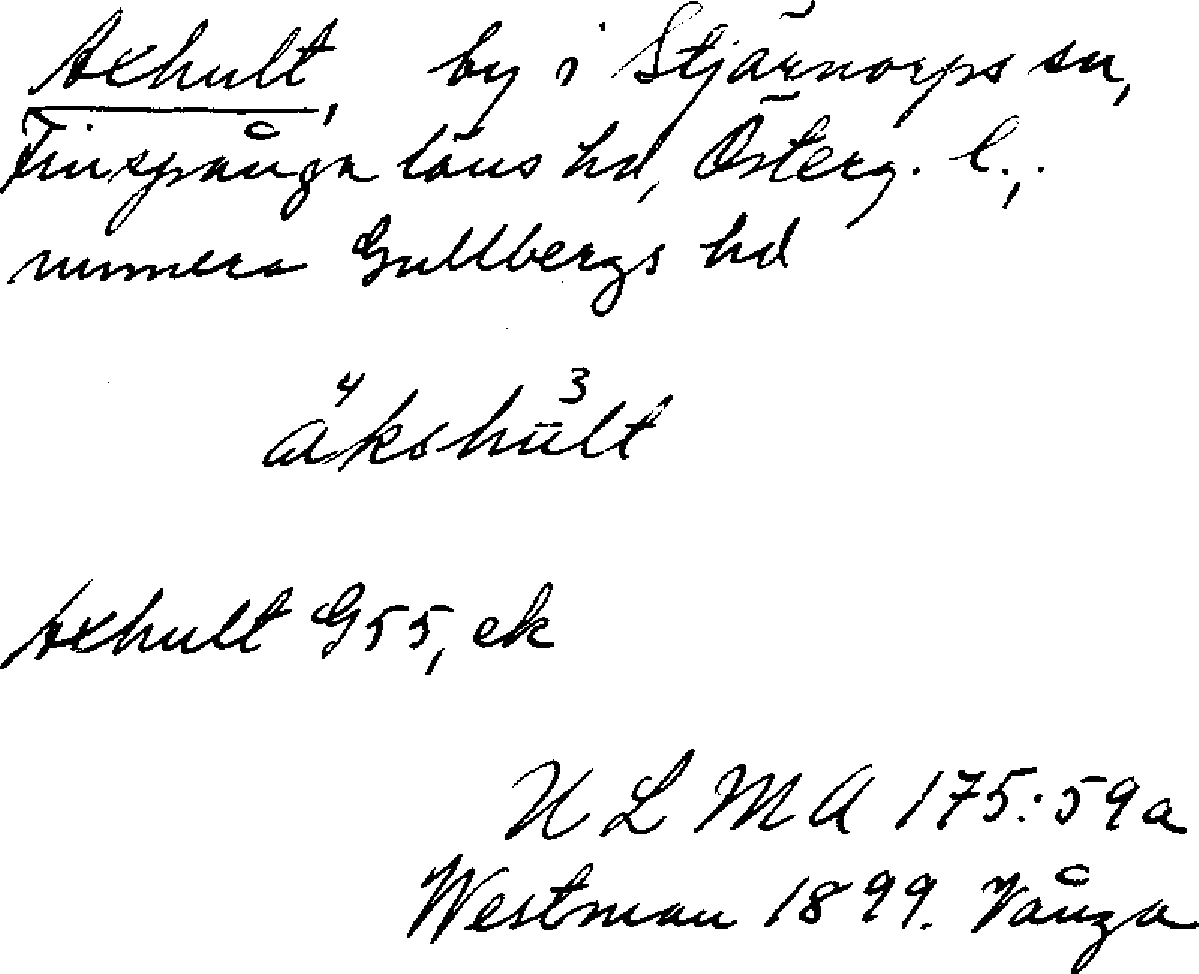 Axhult, by i Stjärnorps sn,
Finspånga läns hd, Österg. l.,
numera Gullbergs hd
äkshult
4 3
Axhult G55, ek
ULMA 175:59a
Westman 1899. Vånga